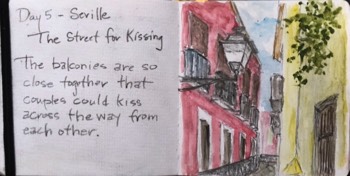 Day 5 - Seville
The Street for Kissing
The balconies are so
close together that
couples could kiss
across the way from
each other.